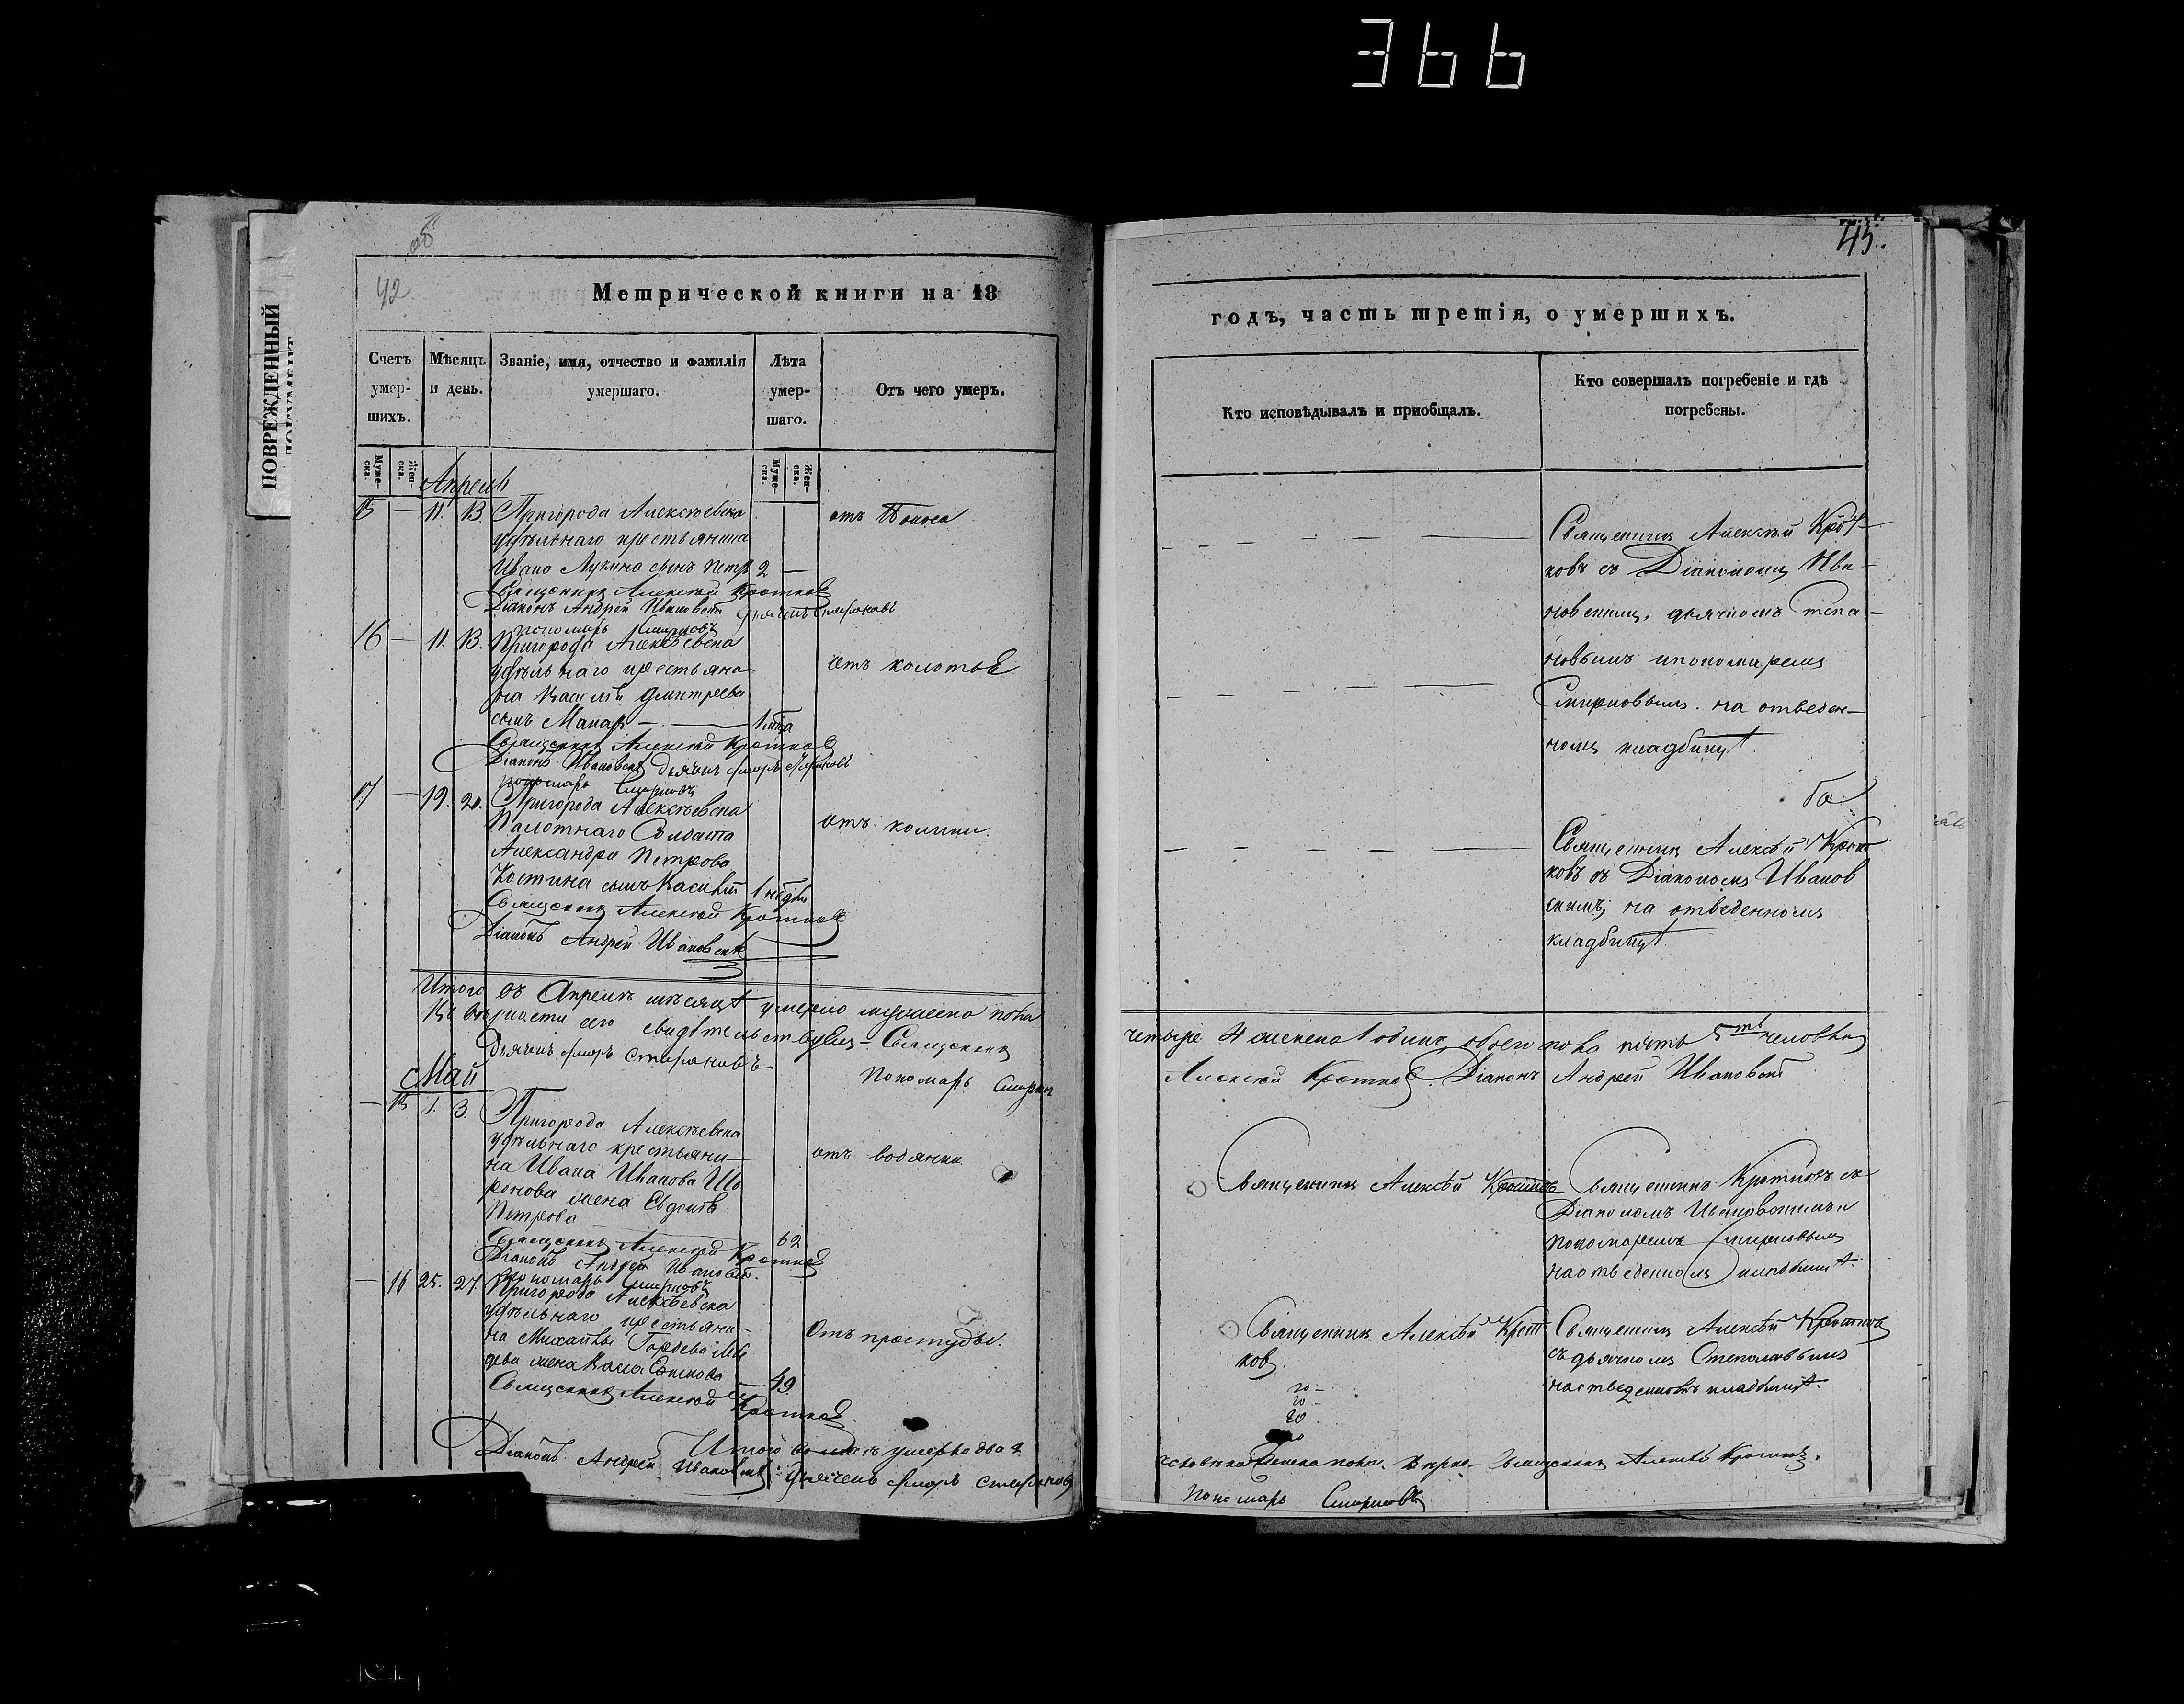 366
ПОВРЕЖДЕННЫЙ
42
Метрической книги на 18
Счетъ умер-шихъ.
Мѣсяцъ и день.
Званіе, имя, отчество и фамилія умершаго.
Лѣта умер-шаго.
Отъ чего умеръ.
Муже-ска.
Жен-ска.
Муже-ска.
Жен-ска.
Апрель
15 — 11. 13. Пригорода Алексѣевска отъ поноса
удѣльнаго крестьянина
Ивана Лукина сынъ Петръ 2 —
Священникъ Алексѣй Кротковъ
Діаконъ Андрей Ивановскій
пономарь Смирновъ
16 — 11. 13. Пригорода Алексѣевска
удѣльнаго крестьяни- отъ колотья
на Василія Дмитріева
сынъ Макаръ — 1 года
Священникъ Алексѣй Кротковъ
Діаконъ Ивановскій дьячекъ
пономарь Смирновъ
17 — 19. 21. Пригорода Алексѣевска
Солдата отъ колики.
Александра Петрова
Костина сынъ Василій 1 нѣдѣли
Священникъ Алексѣй Кротковъ
Діаконъ Андрей Ивановскій
Итого въ Апрелѣ мѣсяцѣ умерло мужеска пола
Въ вѣрности сего свидѣтельствуемъ — Священникъ
Дьячекъ
Пономарь Смирнов
Май
— 15 1. 3. Пригорода Алексѣевска
удѣльнаго крестьяни- отъ водянки.
на Ивана Иванова
жена Евдокія
Петрова 62
Священникъ Алексѣй Кротковъ
Діаконъ Андрей Ивановскій.
пономарь Смирновъ
— 16 25. 27. Пригорода Алексѣевска
удѣльнаго крестьяни-
на Михаила Гордеева Отъ простуды.
жена 49.
Священникъ Алексѣй Кротковъ
Итого умерло два 2
Діаконъ Андрей Ивановскій дьячекъ
45.
годъ, часть третія, о умершихъ.
Кто исповѣдывалъ и пріобщалъ.
Кто совершалъ погребеніе и гдѣ погребены.
Священникъ Алексѣй Крот-
ковъ съ Діакономъ Ива-
новскимъ, дьячкомъ Степа-
новымъ и пономаремъ
Смирновымъ. на отведен-
номъ кладбищѣ.
Священникъ Алексѣй Крот
ковъ съ Діакономъ Иванов
скимъ, на отведенномъ
кладбищѣ.
четыре 4 женска 1 одинъ, обоего пола пять 5ть человѣкъ
Алексѣй Кротковъ. Діаконъ Андрей Ивановскій
Священникъ Алексѣй Кротковъ
Священникъ Кротковъ съ
Діакономъ Ивановскимъ и
пономаремъ Смирновымъ
на отведенномъ кладбищѣ.
Священникъ Алексѣй Крот
ковъ.
Священникъ Алексѣй Кротковъ
съ дьячкомъ Степановымъ
на отведенномъ кладбищѣ.
20 —
20 —
20
человѣка женска пола. Священникъ Алексѣй Кротковъ.
Пономарь Смирновъ